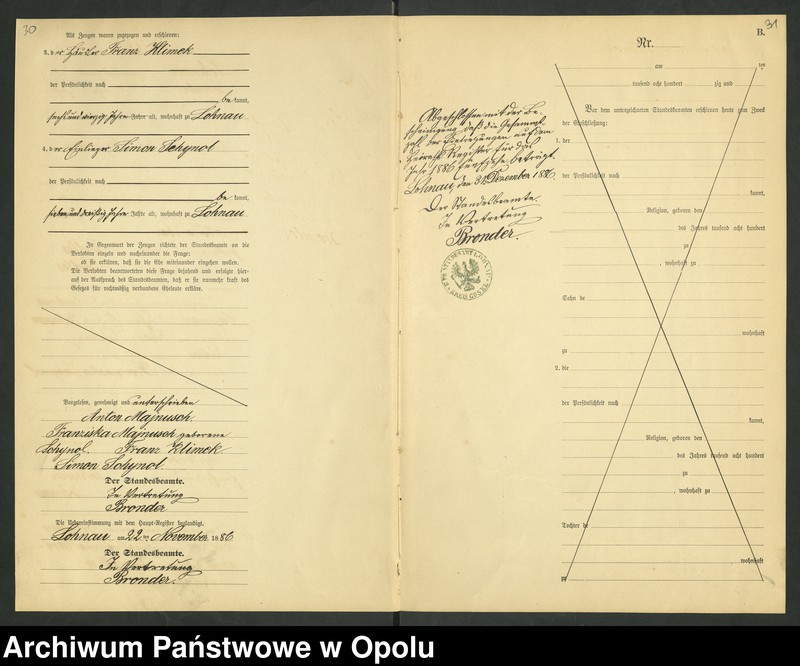 30
Als Zeugen waren zugezogen und erschienen:
3. der Häusler Franz Klimek
der Persönlichkeit nach
be kannt,
sechsundvierzig Jahre alt, wohnhaft zu Lohnau
4. der Einlieger Simon Schynol
der Persönlichkeit nach
be kannt,
siebenunddreißig Jahre alt, wohnhaft zu Lohnau
In Gegenwart der Zeugen richtete der Standesbeamte an die
Verlobten einzeln und nacheinander die Frage:
ob sie erklären, daß sie die Ehe miteinander eingehen wollen.
Die Verlobten beantworteten diese Frage bejahend und erfolgte hier-
auf der Ausspruch des Standesbeamten, daß er sie nunmehr kraft des
Gesetzes für rechtmäßig verbundene Eheleute erkläre.
Vorgelesen, genehmigt und unterschrieben
Anton Majnusch
Franziska Majnusch geborene
Schynol. Franz Klimek
Simon Schynol
Der Standesbeamte.
In Vertretung
Bronder
Die Uebereinstimmung mit dem Haupt-Register beglaubigt.
Lohnau am 22ten November 1886
Der Standesbeamte.
In Vertretung
Bronder.
Abgeschlossen mit der Be-
scheinigung, daß die Gesammt-
zahl der Eintragungen auf dem
Heiraths Register für das
Jahr 1886 fünfzehn beträgt.
Lohnau, den 31. Dezember 1886.
Der Standesbeamte.
In Vertretung
Bronder.
KREIS COSEL
31
B.
Nr.
am ten
tausend acht hundert zig und
Vor dem unterzeichneten Standesbeamten erschienen heute zum Zweck
der Eheschließung:
1. der
der Persönlichkeit nach
kannt,
Religion, geboren den
des Jahres tausend acht hundert
zu
, wohnhaft zu
Sohn de
wohnhaft
zu
2. die
der Persönlichkeit nach
kannt,
Religion, geboren den
des Jahres tausend acht hundert
zu
, wohnhaft zu
Tochter de
wohnhaft
zu
Archiwum Państwowe w Opolu